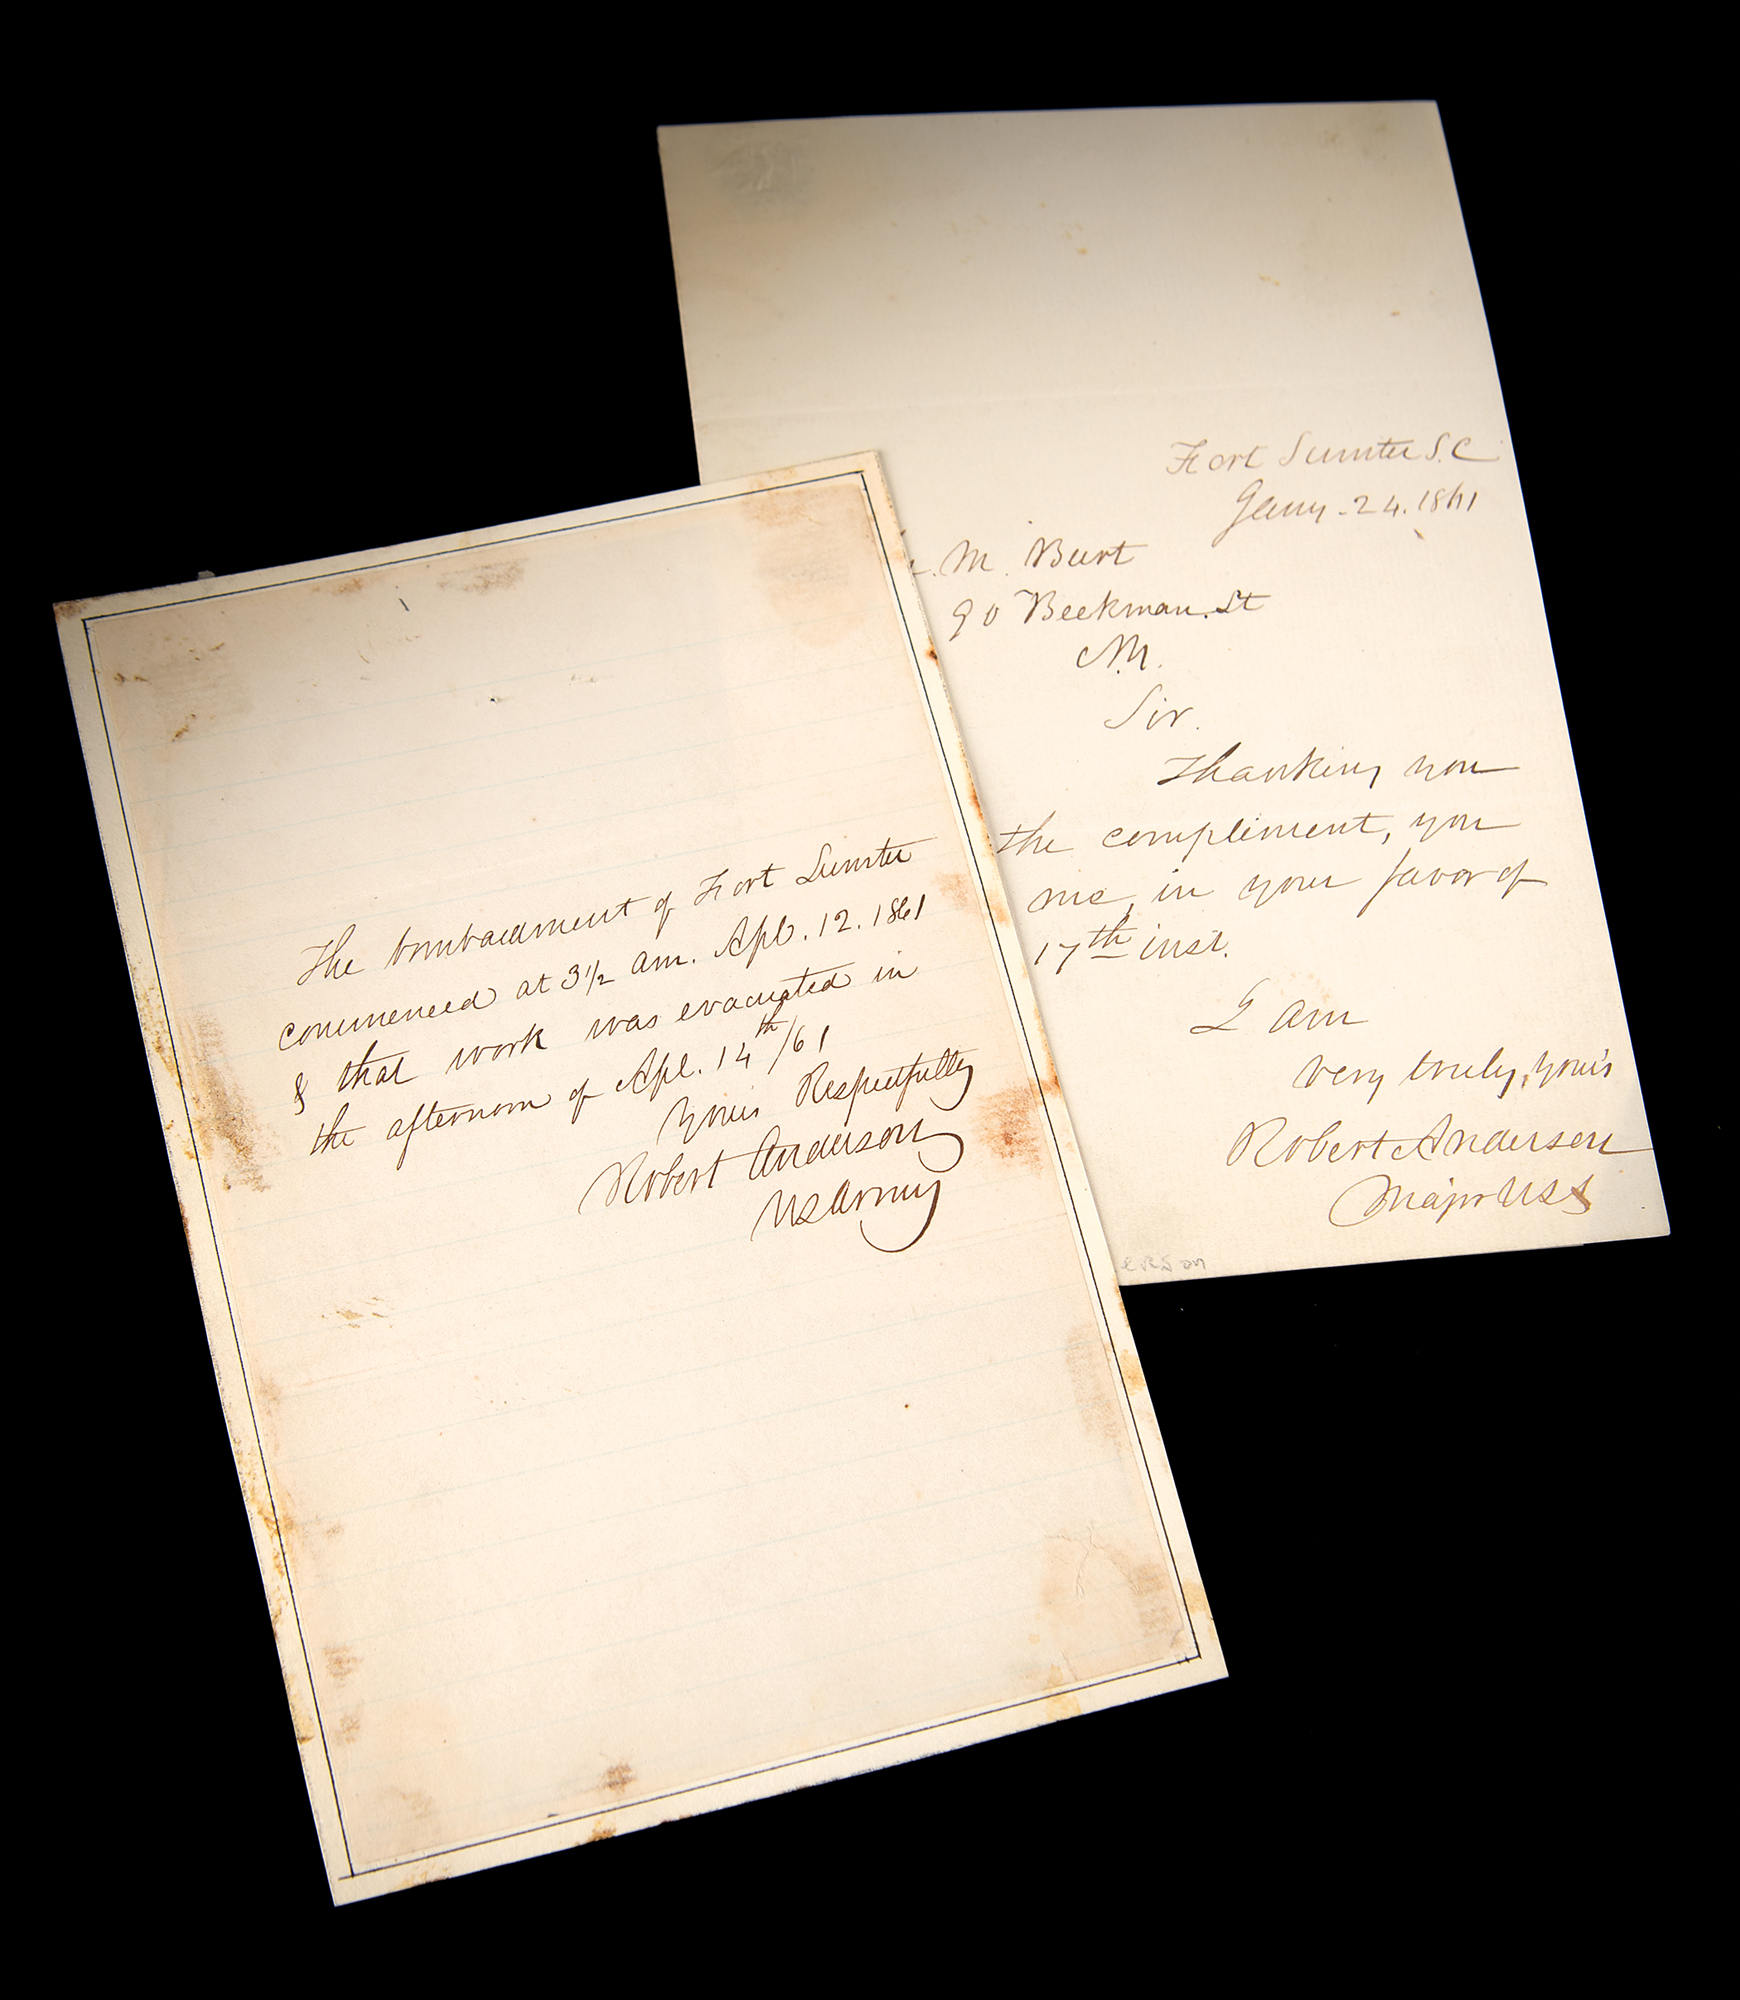 The bombardment of Fort Sumter
commenced at 3 1/2 am. Apl. 12. 1861
& that work was evacuated in
the afternoon of Apl. 14th/61
Yours Respectfully
Robert Anderson
US Army
Fort Sumter S.C
Jany - 24. 1861
M. Burt
90 Beekman. St
N.Y.
Sir.
Thanking you
the compliment, you
me, in your favor of
17th inst.
I am
very truly, yours
Robert Anderson
Major USA
erson